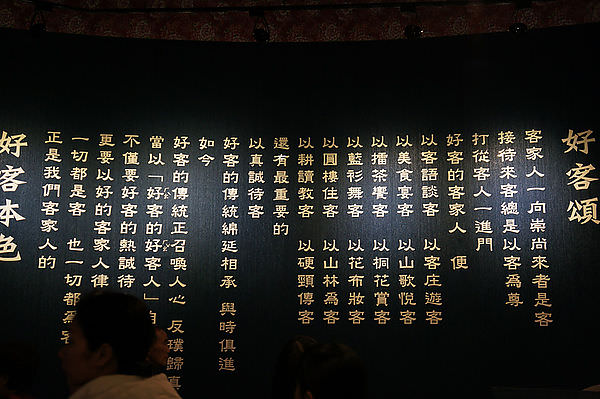 好客頌
客家人一向崇尚來者是客
接待來客總是以客為尊
打從客人一進門
好客的客家人 便
以客語談客 以客庄遊客
以美食宴客 以山歌悅客
以擂茶饗客 以桐花賞客
以藍衫舞客 以花布妝客
以圓樓住客 以山林為客
以耕讀教客 以硬頸傳客
還有最重要的
以真誠待客
好客的傳統綿延相承 與時俱進
如今
好客的傳統正召喚人心 反璞歸真
當以「好客的好客人」自
不僅要好客的熱誠待
更要以好的客家人律
一切都是客 也一切都為客
正是我們客家人的
好客本色